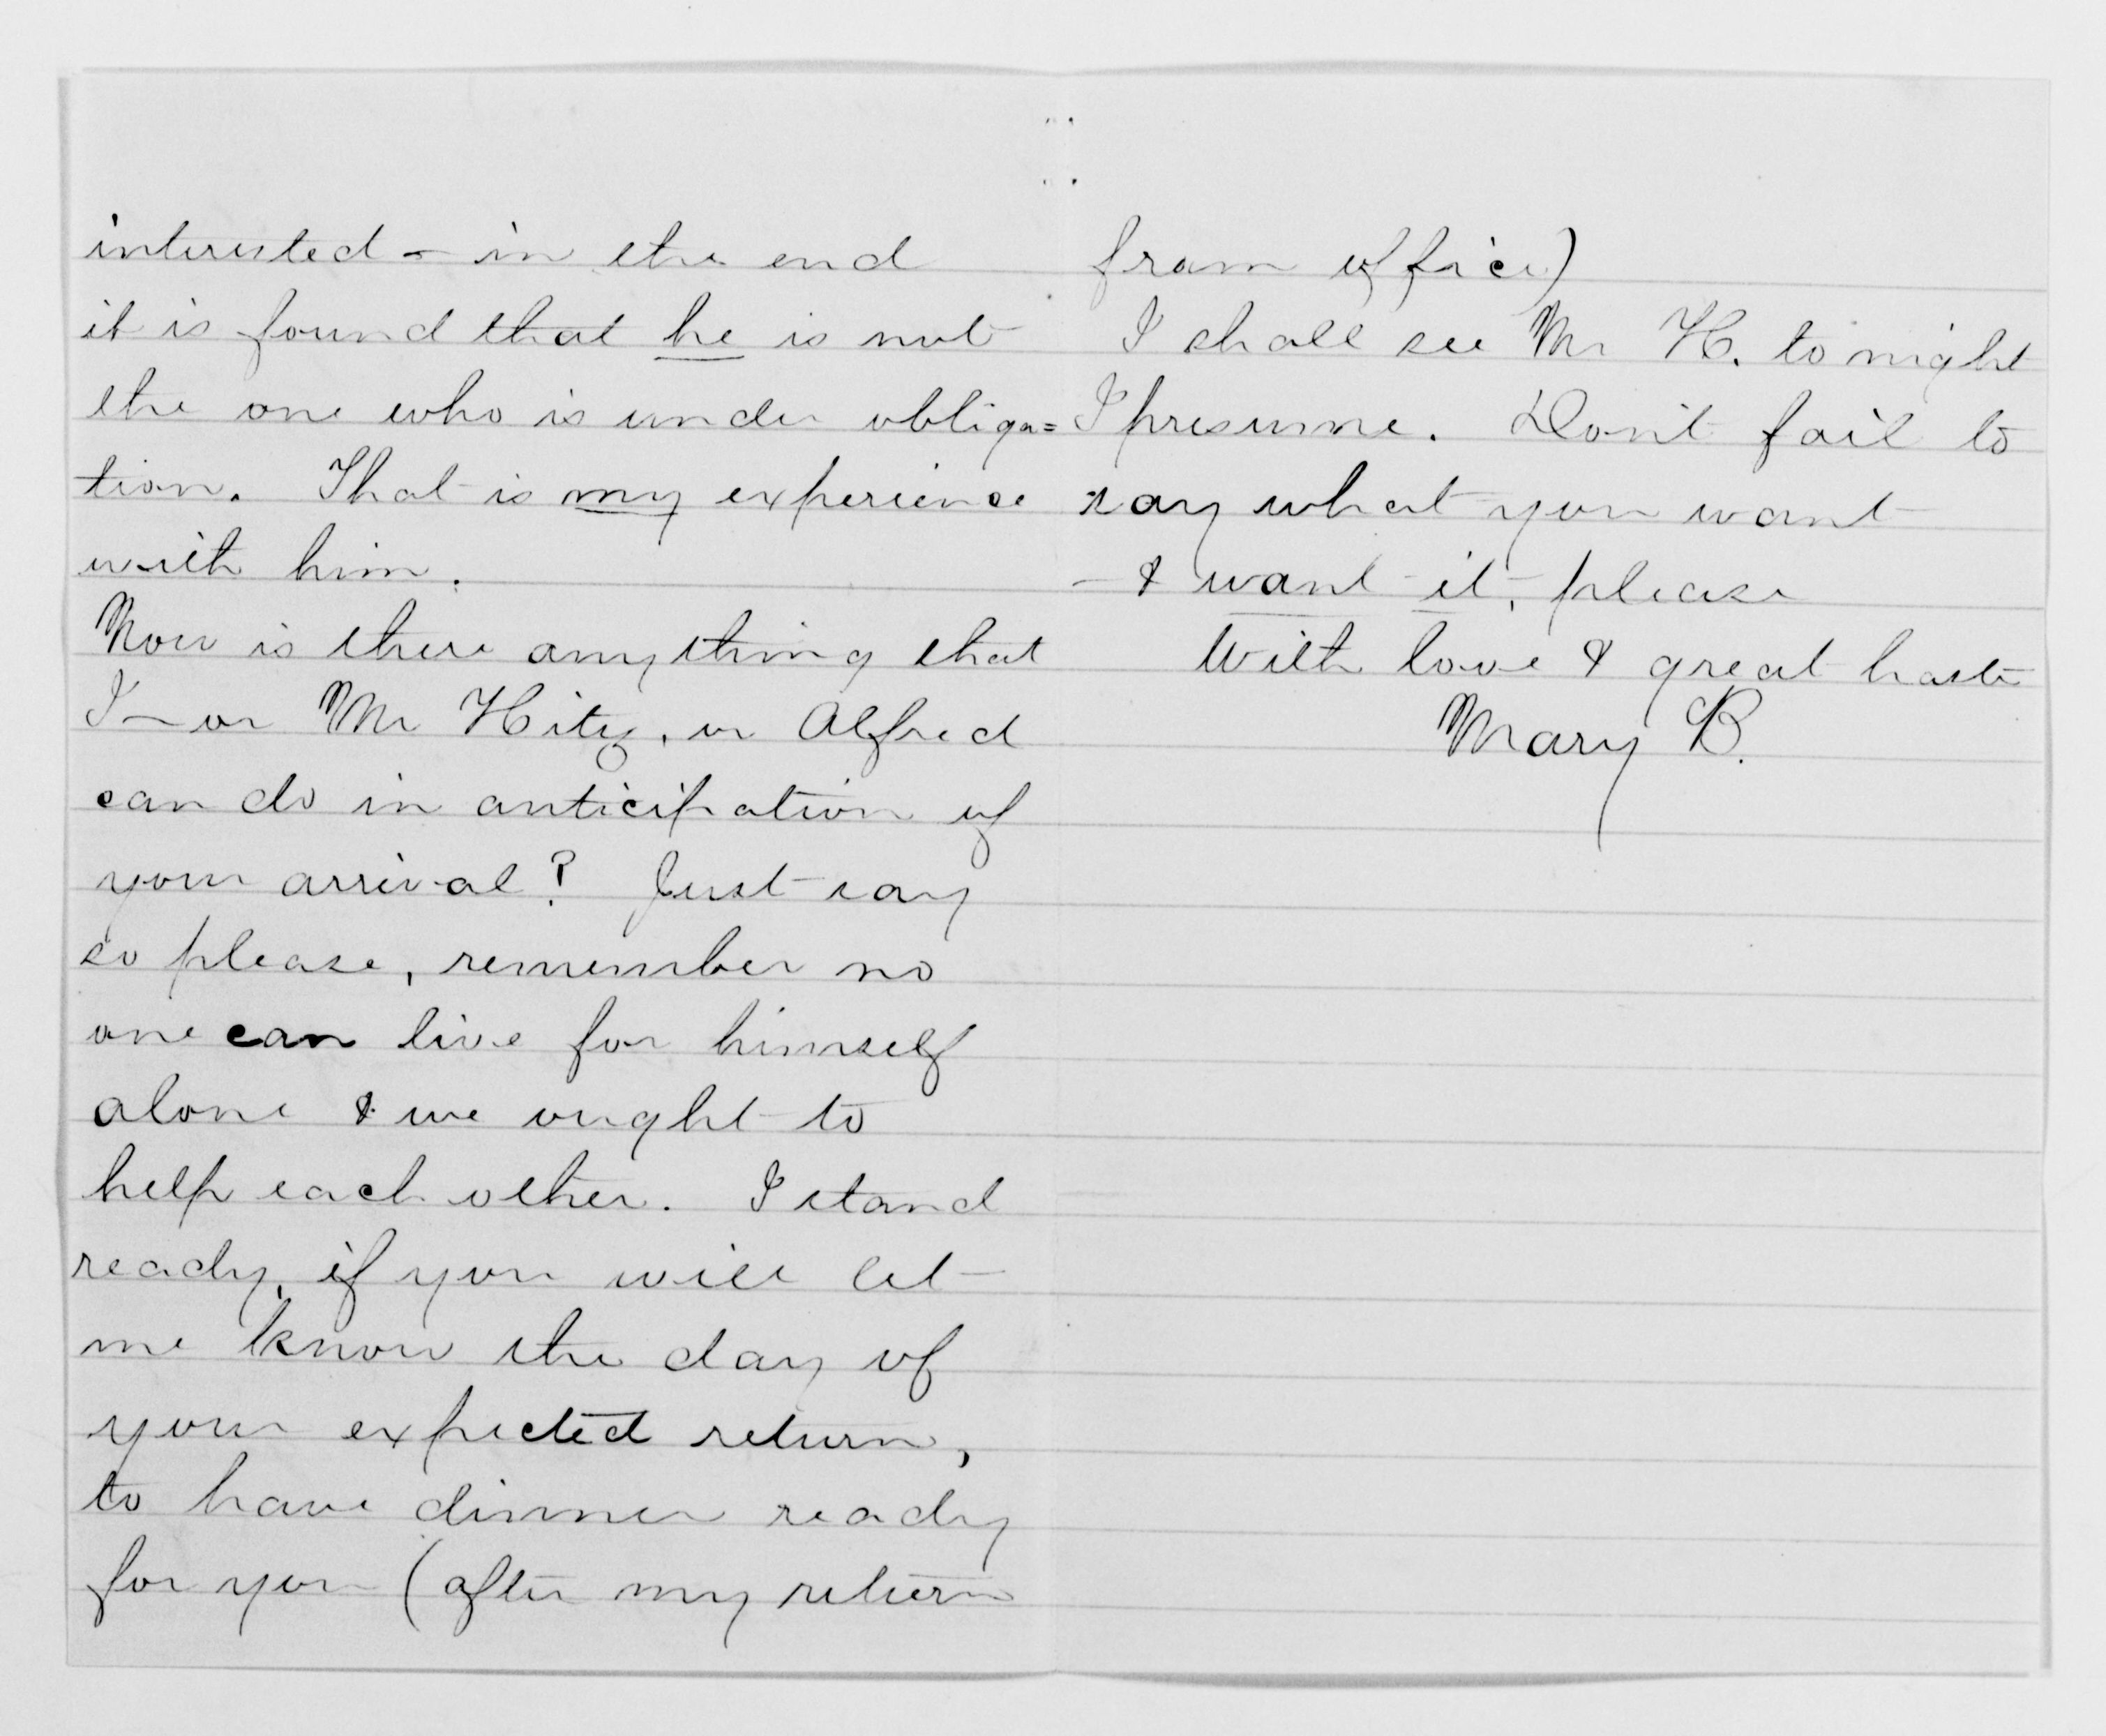 interested - in the end
it is found that he is not
the one who is under obliga=
tion. That is my experience
with him.
Now is there any thing that
I - or Mr Hitz, or Alfred
can do in anticipation of
your arrival? Just say
so please, remember no
one can live for himself
alone & we ought to
help each other. I stand
ready, if you will let
me know the day of
your expected return,
to have dinner ready
for you (after my return
from office)
I shall see Mr H. to night
I presume. Don't fail to
say what you want
- & want it, please
With love & great haste
Mary B.